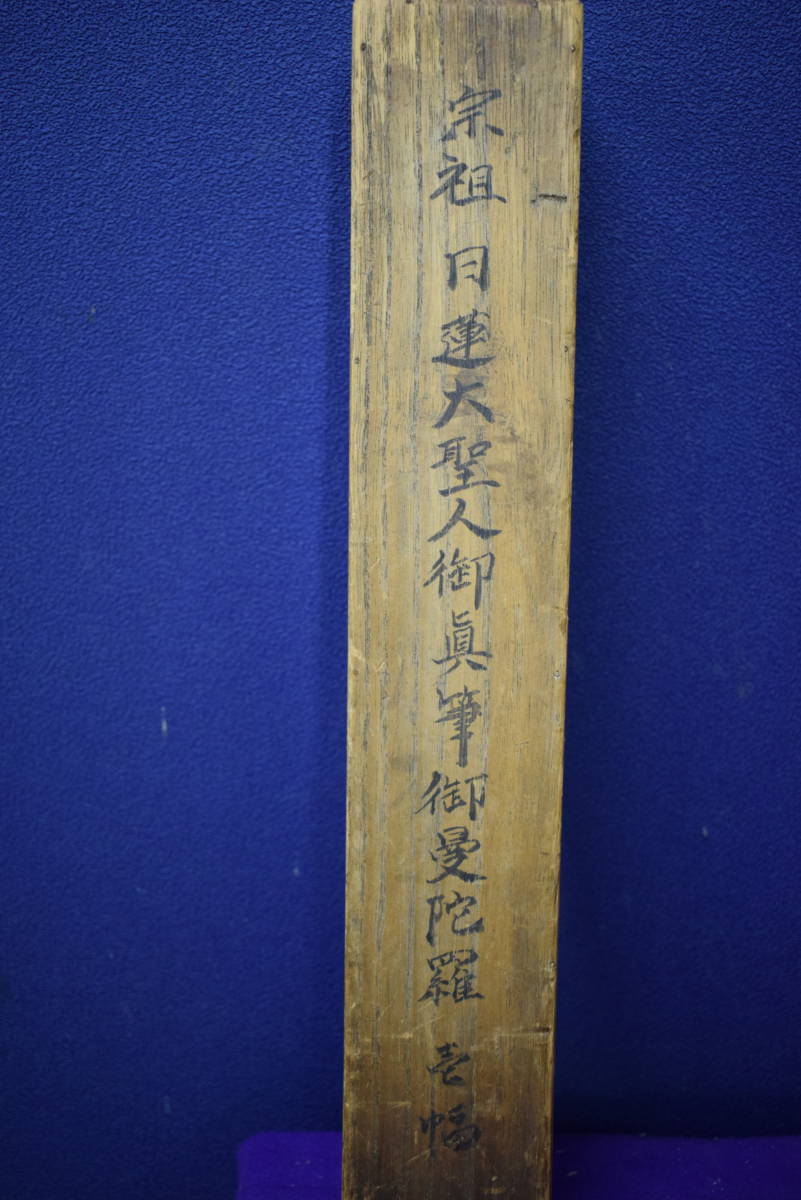 宗祖 日蓮大聖人御眞筆御曼陀羅 壱幅